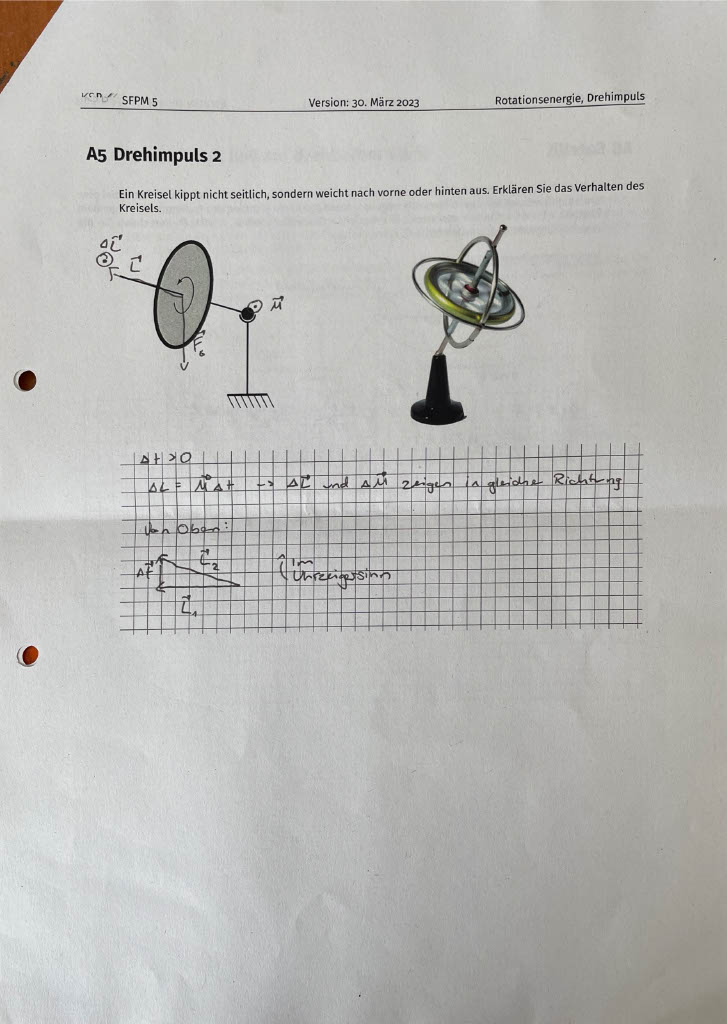 SFPM 5
Version: 30. März 2023
Rotationsenergie, Drehimpuls
A5 Drehimpuls 2
Ein Kreisel kippt nicht seitlich, sondern weicht nach vorne oder hinten aus. Erklären Sie das Verhalten des
Kreisels.
ΔL⃗
L⃗
M⃗
F⃗G
Δt > 0
ΔL = M⃗Δt -> ΔL⃗ und ΔM⃗ zeigen in gleiche Richtung
Von Oben:
L⃗2
im
Uhrzeigersinn
L⃗1